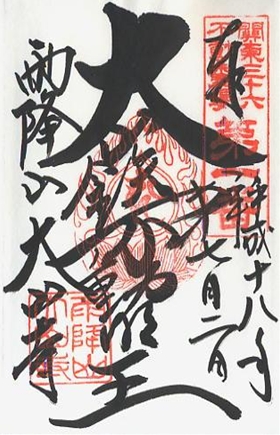 關東三十六
不動霊場
第一番
奉
平成十八年
七月二日
大 不動明王
雨降山大山寺
雨降山
大山寺